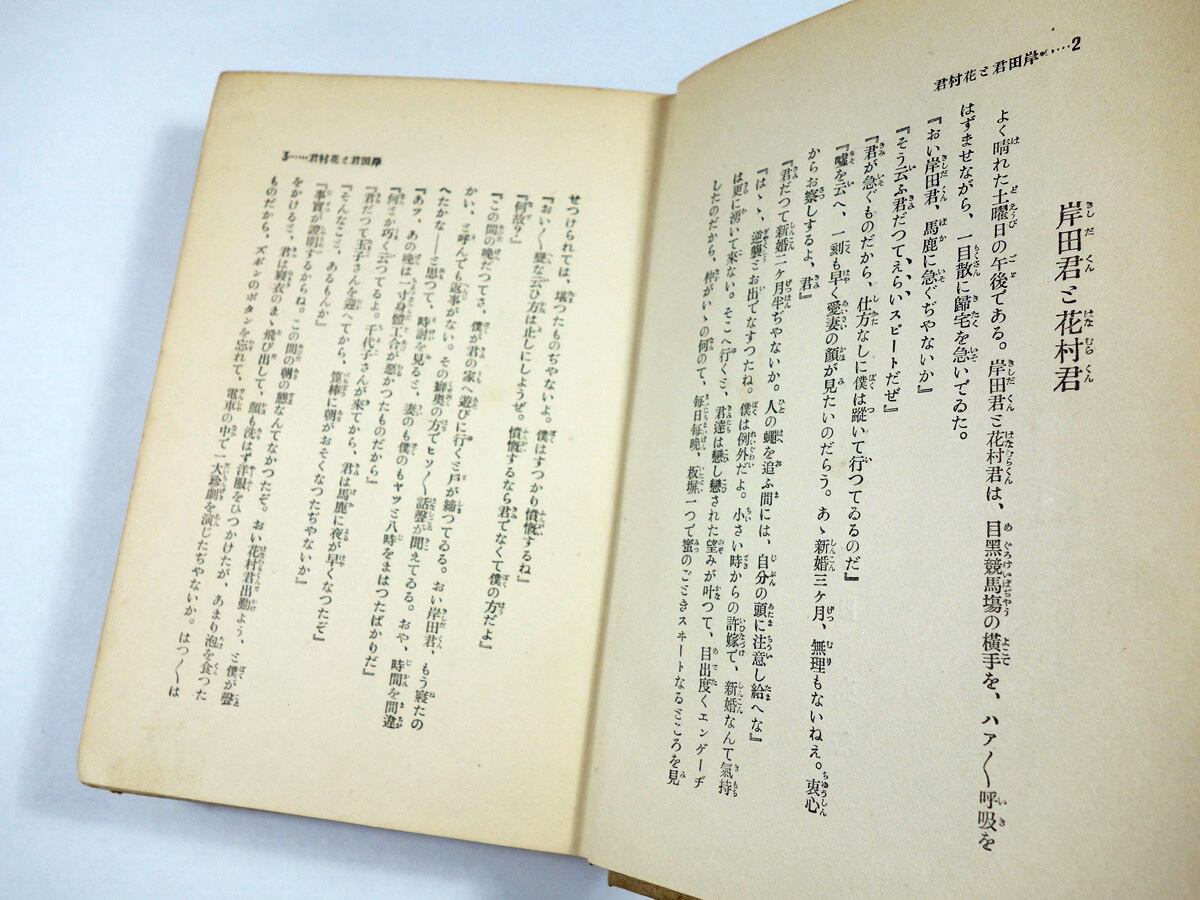 2……岸田君と花村君
岸田君と花村君
よく晴れた土曜日の午後である。岸田君と花村君は、目黑競馬塲の橫手を、ハア〳〵呼吸を
はずませながら、一目散に歸宅を急いでゐた。
『おい岸田君、馬鹿に急ぐぢやないか』
『そう云ふ君だつてえらいスピートだぜ』
『君が急ぐものだから、仕方なしに僕は蹤いて行つてゐるのだ』
『嘘を云へ、一刻も早く愛妻の顏が見たいのだらう。あゝ新婚三ケ月、無理もないねえ。衷心
からお察しするよ、君』
『君だつて新婚二ケ月半ぢやないか。人の蠅を追ふ間には、自分の頭に注意し給へな』
『はゝゝ、逆襲とお出でなすつたね。僕は例外だよ。小さい時からの許嫁で、新婚なんて氣持
は更に湧いて來ない。そこへ行くと、君達は戀し戀された望みが叶つて、目出度くエンゲーヂ
したのだから、仲がいゝの何のて、每日每晩、板塀一つで蜜のごときスヰートなるところを見
3……岸田君と花村君
せつけられては、堪つたものぢやないよ。僕はすつかり憤慨するね』
『おい〳〵變な云ひ方は止しにしようぜ。憤慨するなら君でなくて僕の方だよ』
『何故？』
『この間の晩だつてさ、僕が君の家へ遊びに行くと戸が締つてゐる。おい岸田君、もう寢たの
かい、と呼んでも返事がない。その癖奧の方でヒソ〳〵話聲が聞えてゐる。おや、時間を間違
へたかな――と思つて、時計を見ると、妻のも僕のもヤツと八時をまはつたばかりだ』
『あヲ、あの晩は一寸身體工合が惡かつたものだから』
『何とか巧く云つてるよ。千代子さんが來てから、君は馬鹿に夜が早くなつたぞ』
『君だつて玉子さんを迎へてから、篦棒に朝がおそくなつたぢやないか』
『そんなこと、あるもんか』
『事實が證明するからね。この間の朝の態なんてなかつたぞ。おい花村君出勤よう、と僕が聲
をかけると、君は寢衣のまゝ飛び出して、顏も洗はず洋服をひつかけたが、あまり泡を食つた
ものだから、ズボンのボタンを忘れて、電車の中で一大珍劇を演じたぢやないか。はつ〳〵は